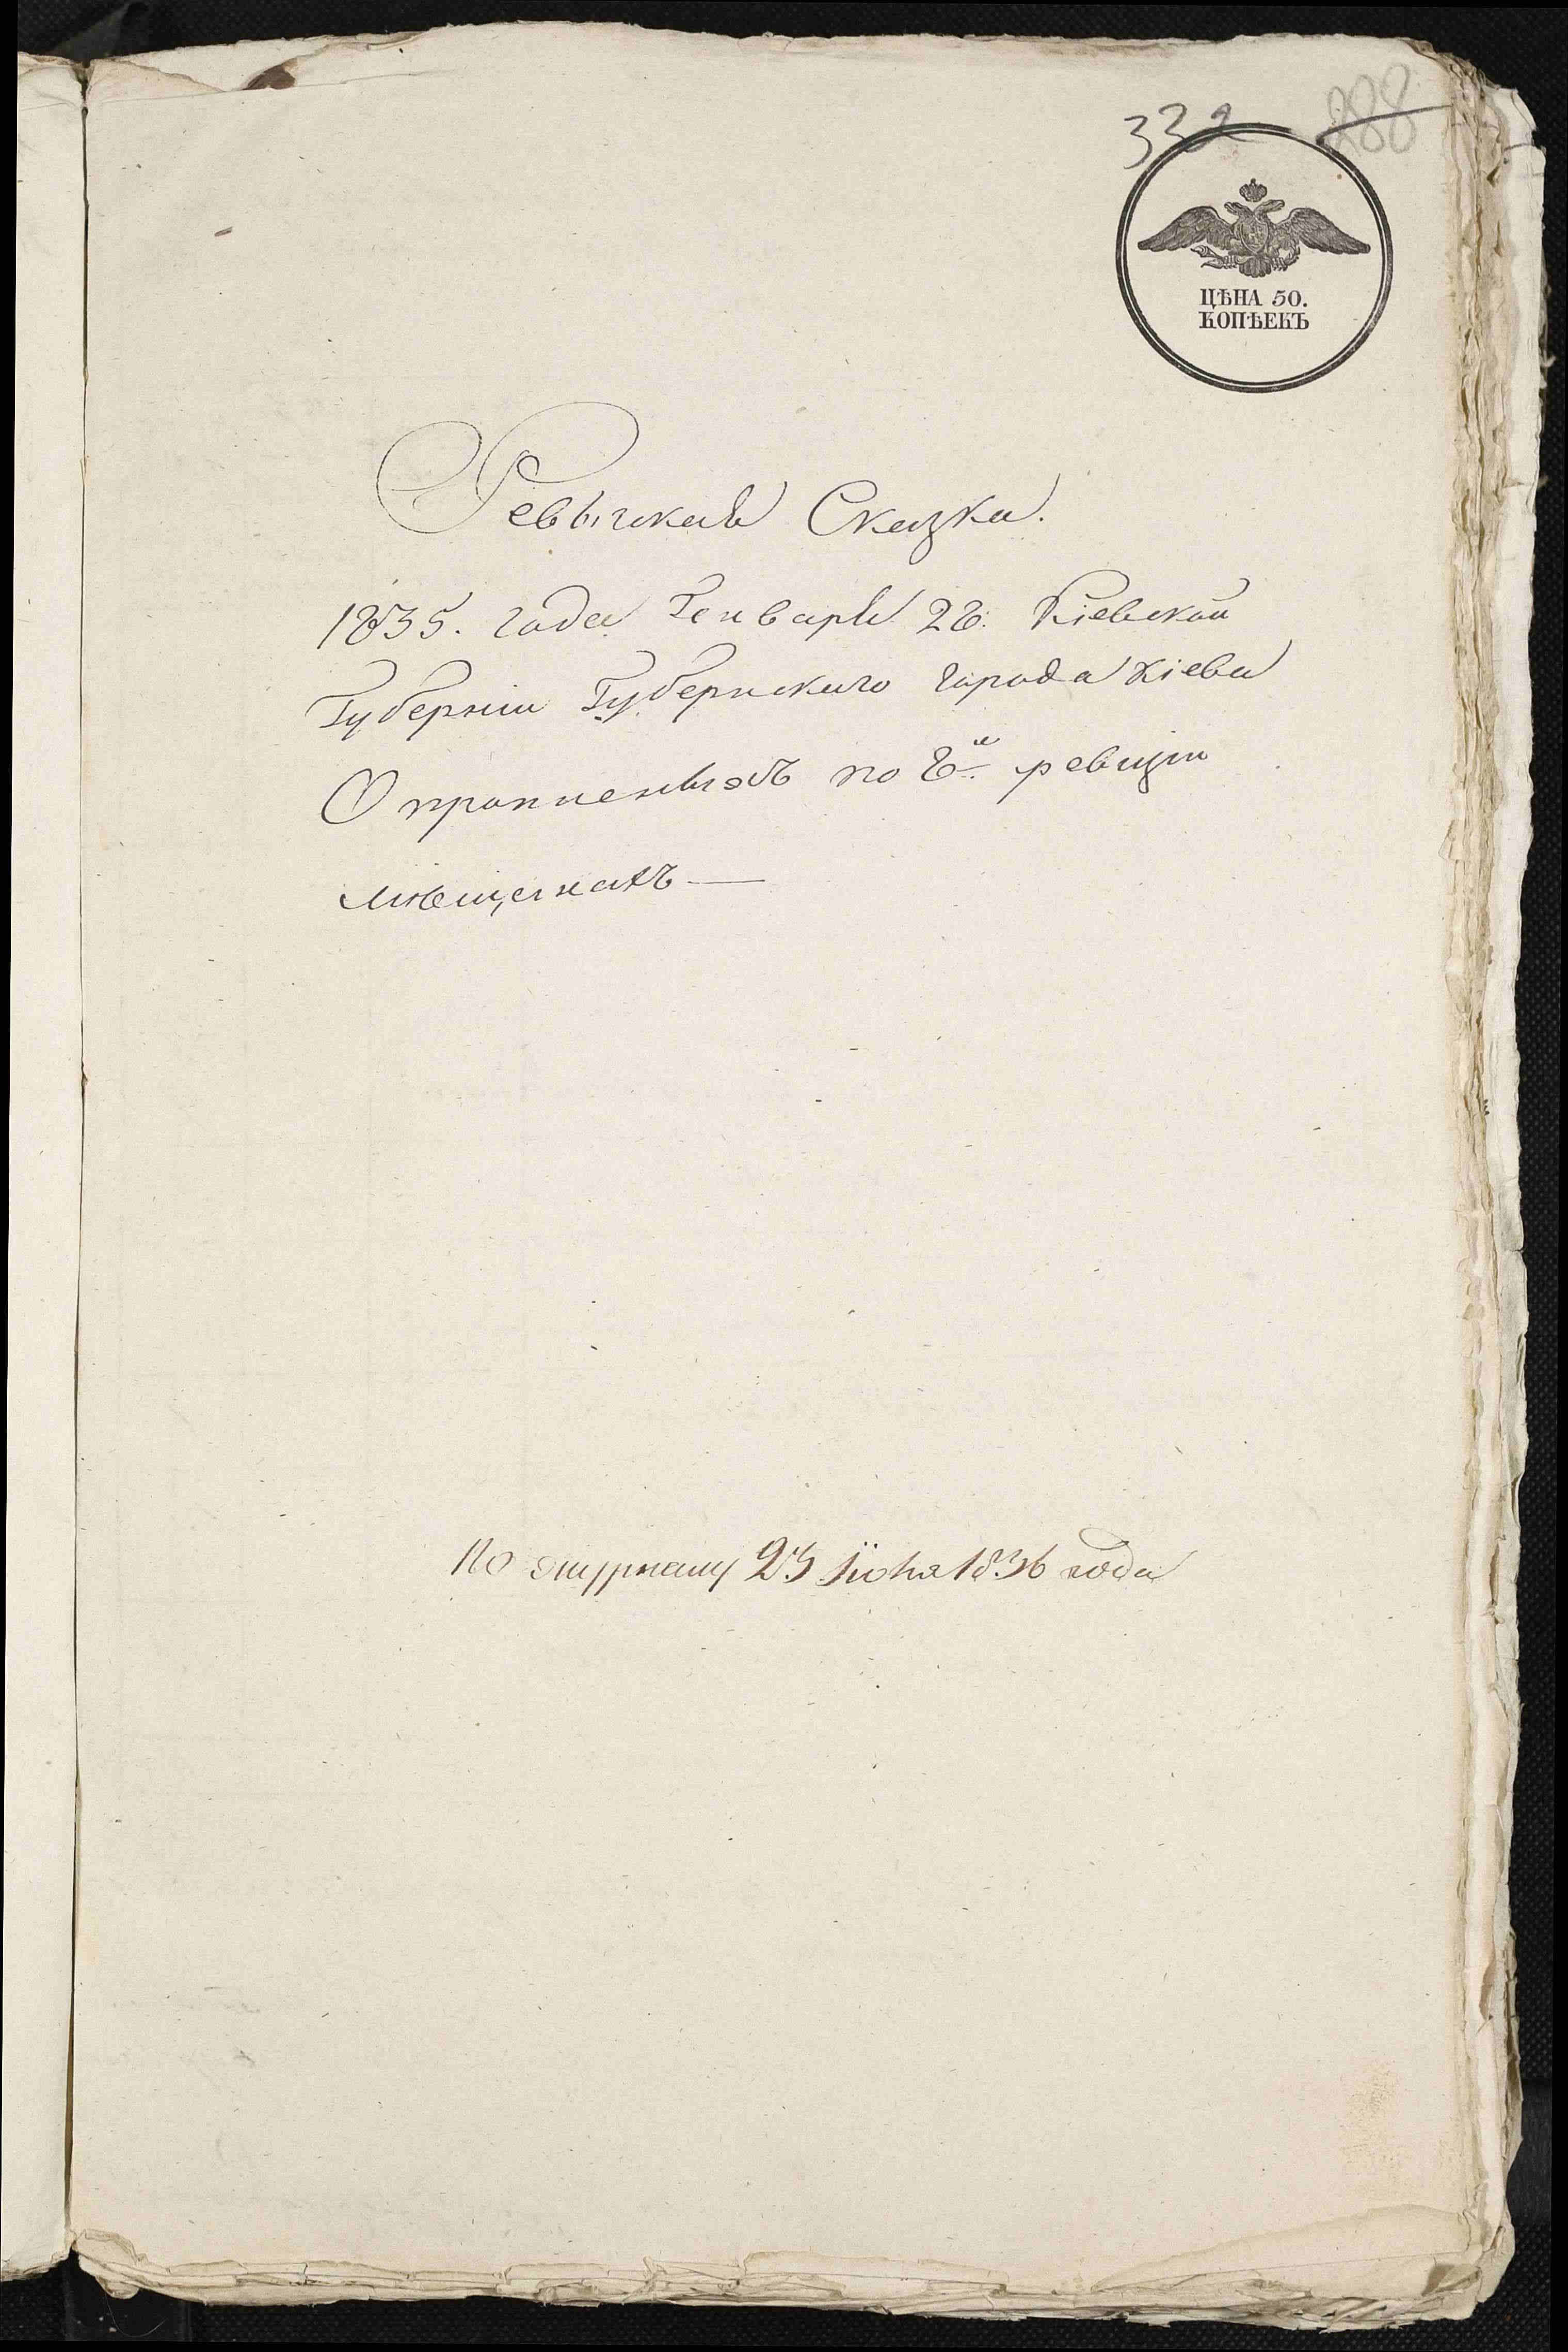 332 288
ЦѢНА 50.
КОПѢЕКЪ
Ревыская Сказка.
1835. года Генваря 28. Кіевской
Губерніи Губернскаго города Кіева
О пропиенныхъ по 8й. ревизіи
мѣщанахъ —
По журналу 23 Іюня 1836 года